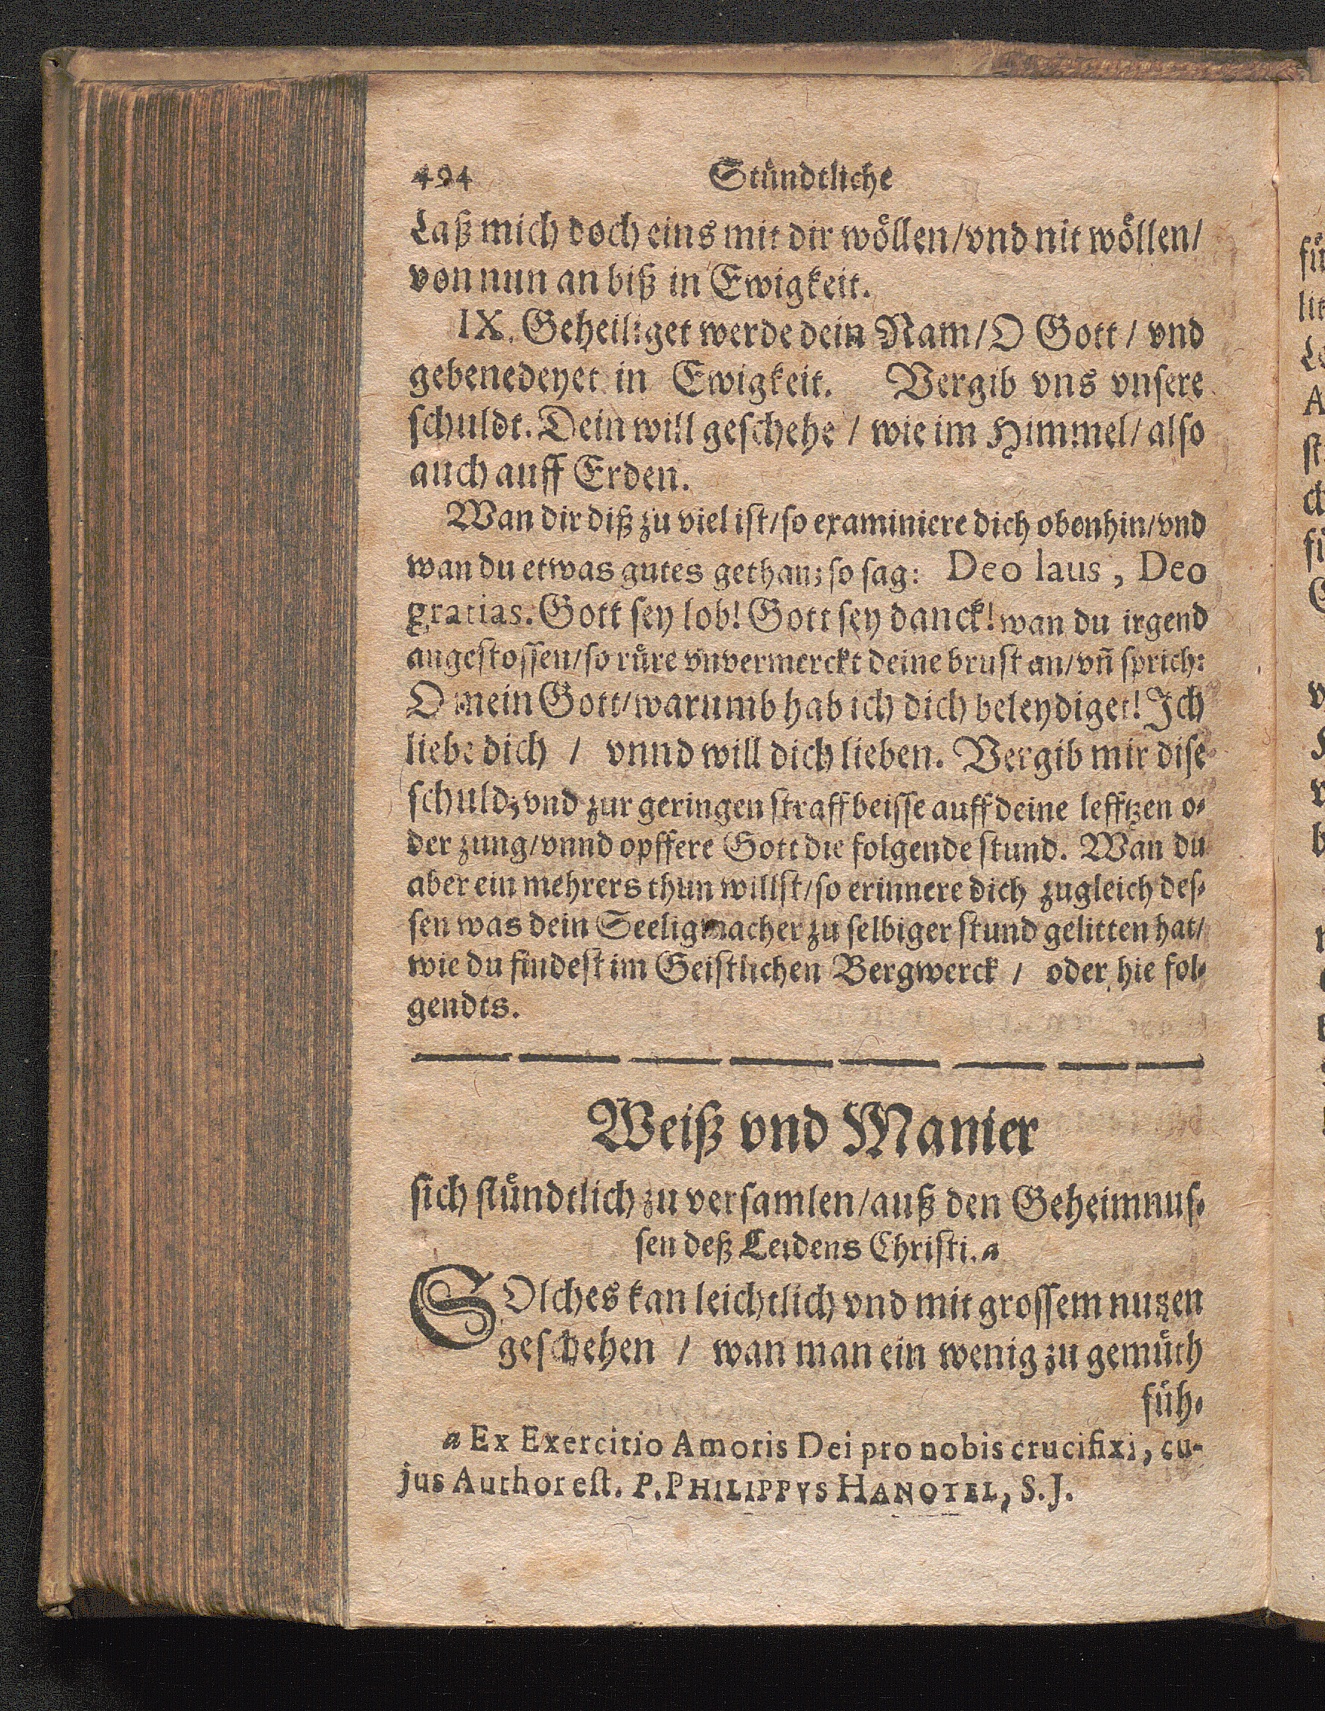 494 Stündtliche
Laß mich doch eins mit dir wöllen/vnd nit wöllen/
von nun an biß in Ewigkeit.
IX. Geheiliget werde dein Nam/O Gott / vnd
gebenedeyet in Ewigkeit. Vergib vns vnsere
schuldt. Dein will geschehe / wie im Himmel/ also
auch auff Erden.
Wan dir diß zu viel ist/so examiniere dich obenhin/vnd
wan du etwas gutes gethan; so sag: Deo laus, Deo
gratias. Gott sey lob! Gott sey danck! wan du irgend
angestossen/so rüre vnvermerckt deine brust an/vn̄ sprich:
O mein Gott/warumb hab ich dich beleydiget! Ich
liebe dich / vnnd will dich lieben. Vergib mir dise
schuld; vnd zur geringen straff beisse auff deine lefftzen o-
der zung/vnnd opffere Gott die folgende stund. Wan du
aber ein mehrers thun willst/so erinnere dich zugleich des-
sen was dein Seeligmacher zu selbiger stund gelitten hat/
wie du findest im Geistlichen Bergwerck / oder hie fol-
gendts.
Weiß vnd Manier
sich stündtlich zu versamlen/auß den Geheimnus-
sen deß Leidens Christi. a
SOlches kan leichtlich vnd mit grossem nutzen
geschehen / wan man ein wenig zu gemüth
füh-
a Ex Exercitio Amoris Dei pro nobis crucifixi, cu-
jus Author est. P. PHILIPPVS HANOTEL, S.J.